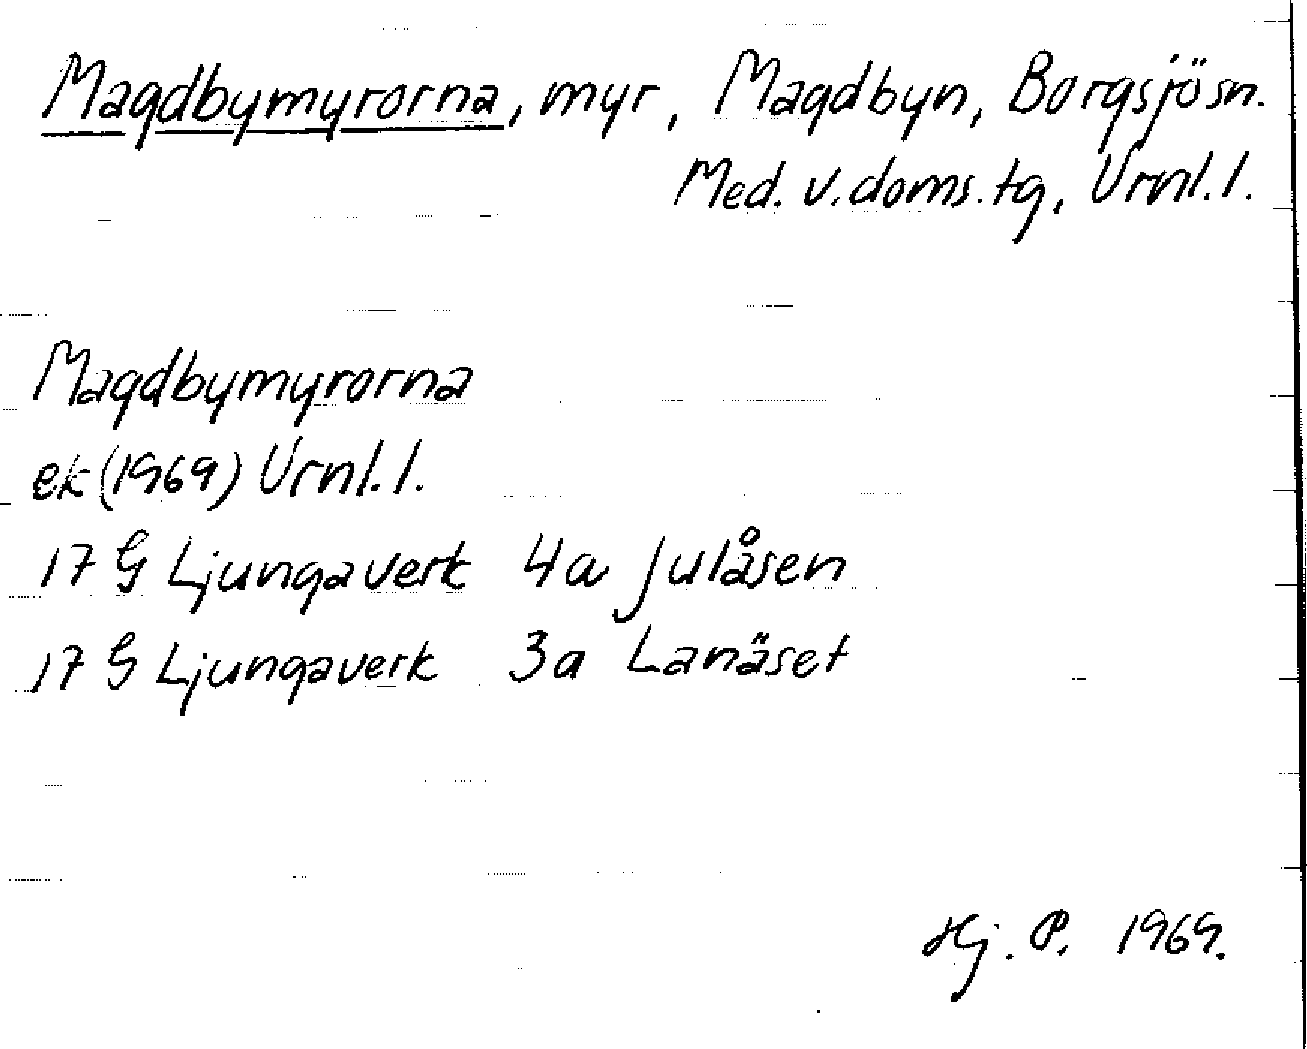 Magdbymyrorna, myr, Magdbyn, Borgsjösn.
Med. v. doms. tg, Vrnl. l.
Magdbymyrorna
ek (1969) Vrnl. l.
17 G Ljungaverk 4a Julåsen
17 G Ljungaverk 3a Lanäset
Hj. P. 1969.